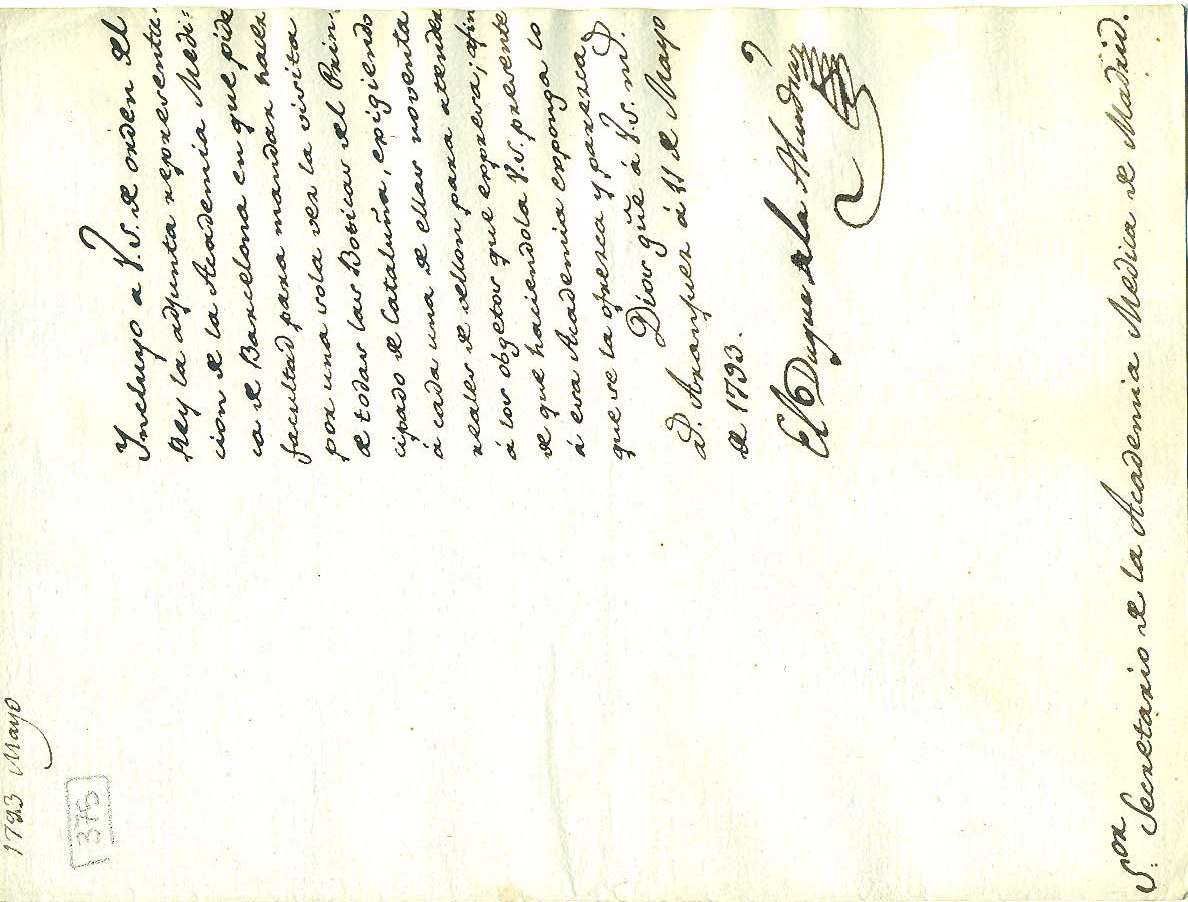 1793 Mayo
375
Yncluyo a V.S. de orden del
Rey la adjunta representa-
cion de la Academia Medi=
ca de Barcelona en que pide
facultad para mandar hacer
por una sola vez la visita
de todas las Boticas del Prin-
cipado de Cataluña, exigiendo
á cada una de ellas noventa
reales de vellon para atender
á los obgetos que expresa; afin
de que haciendola V.S. presente
á esa Academia exponga lo
que se la ofrezca y parezca.
Dios gũe á V.S. m.s
a.s Aranjuez á 11 de Mayo
de 1793.
El Duque de la Alcudia
S.or Secretario de la Academia Medica de Madrid.